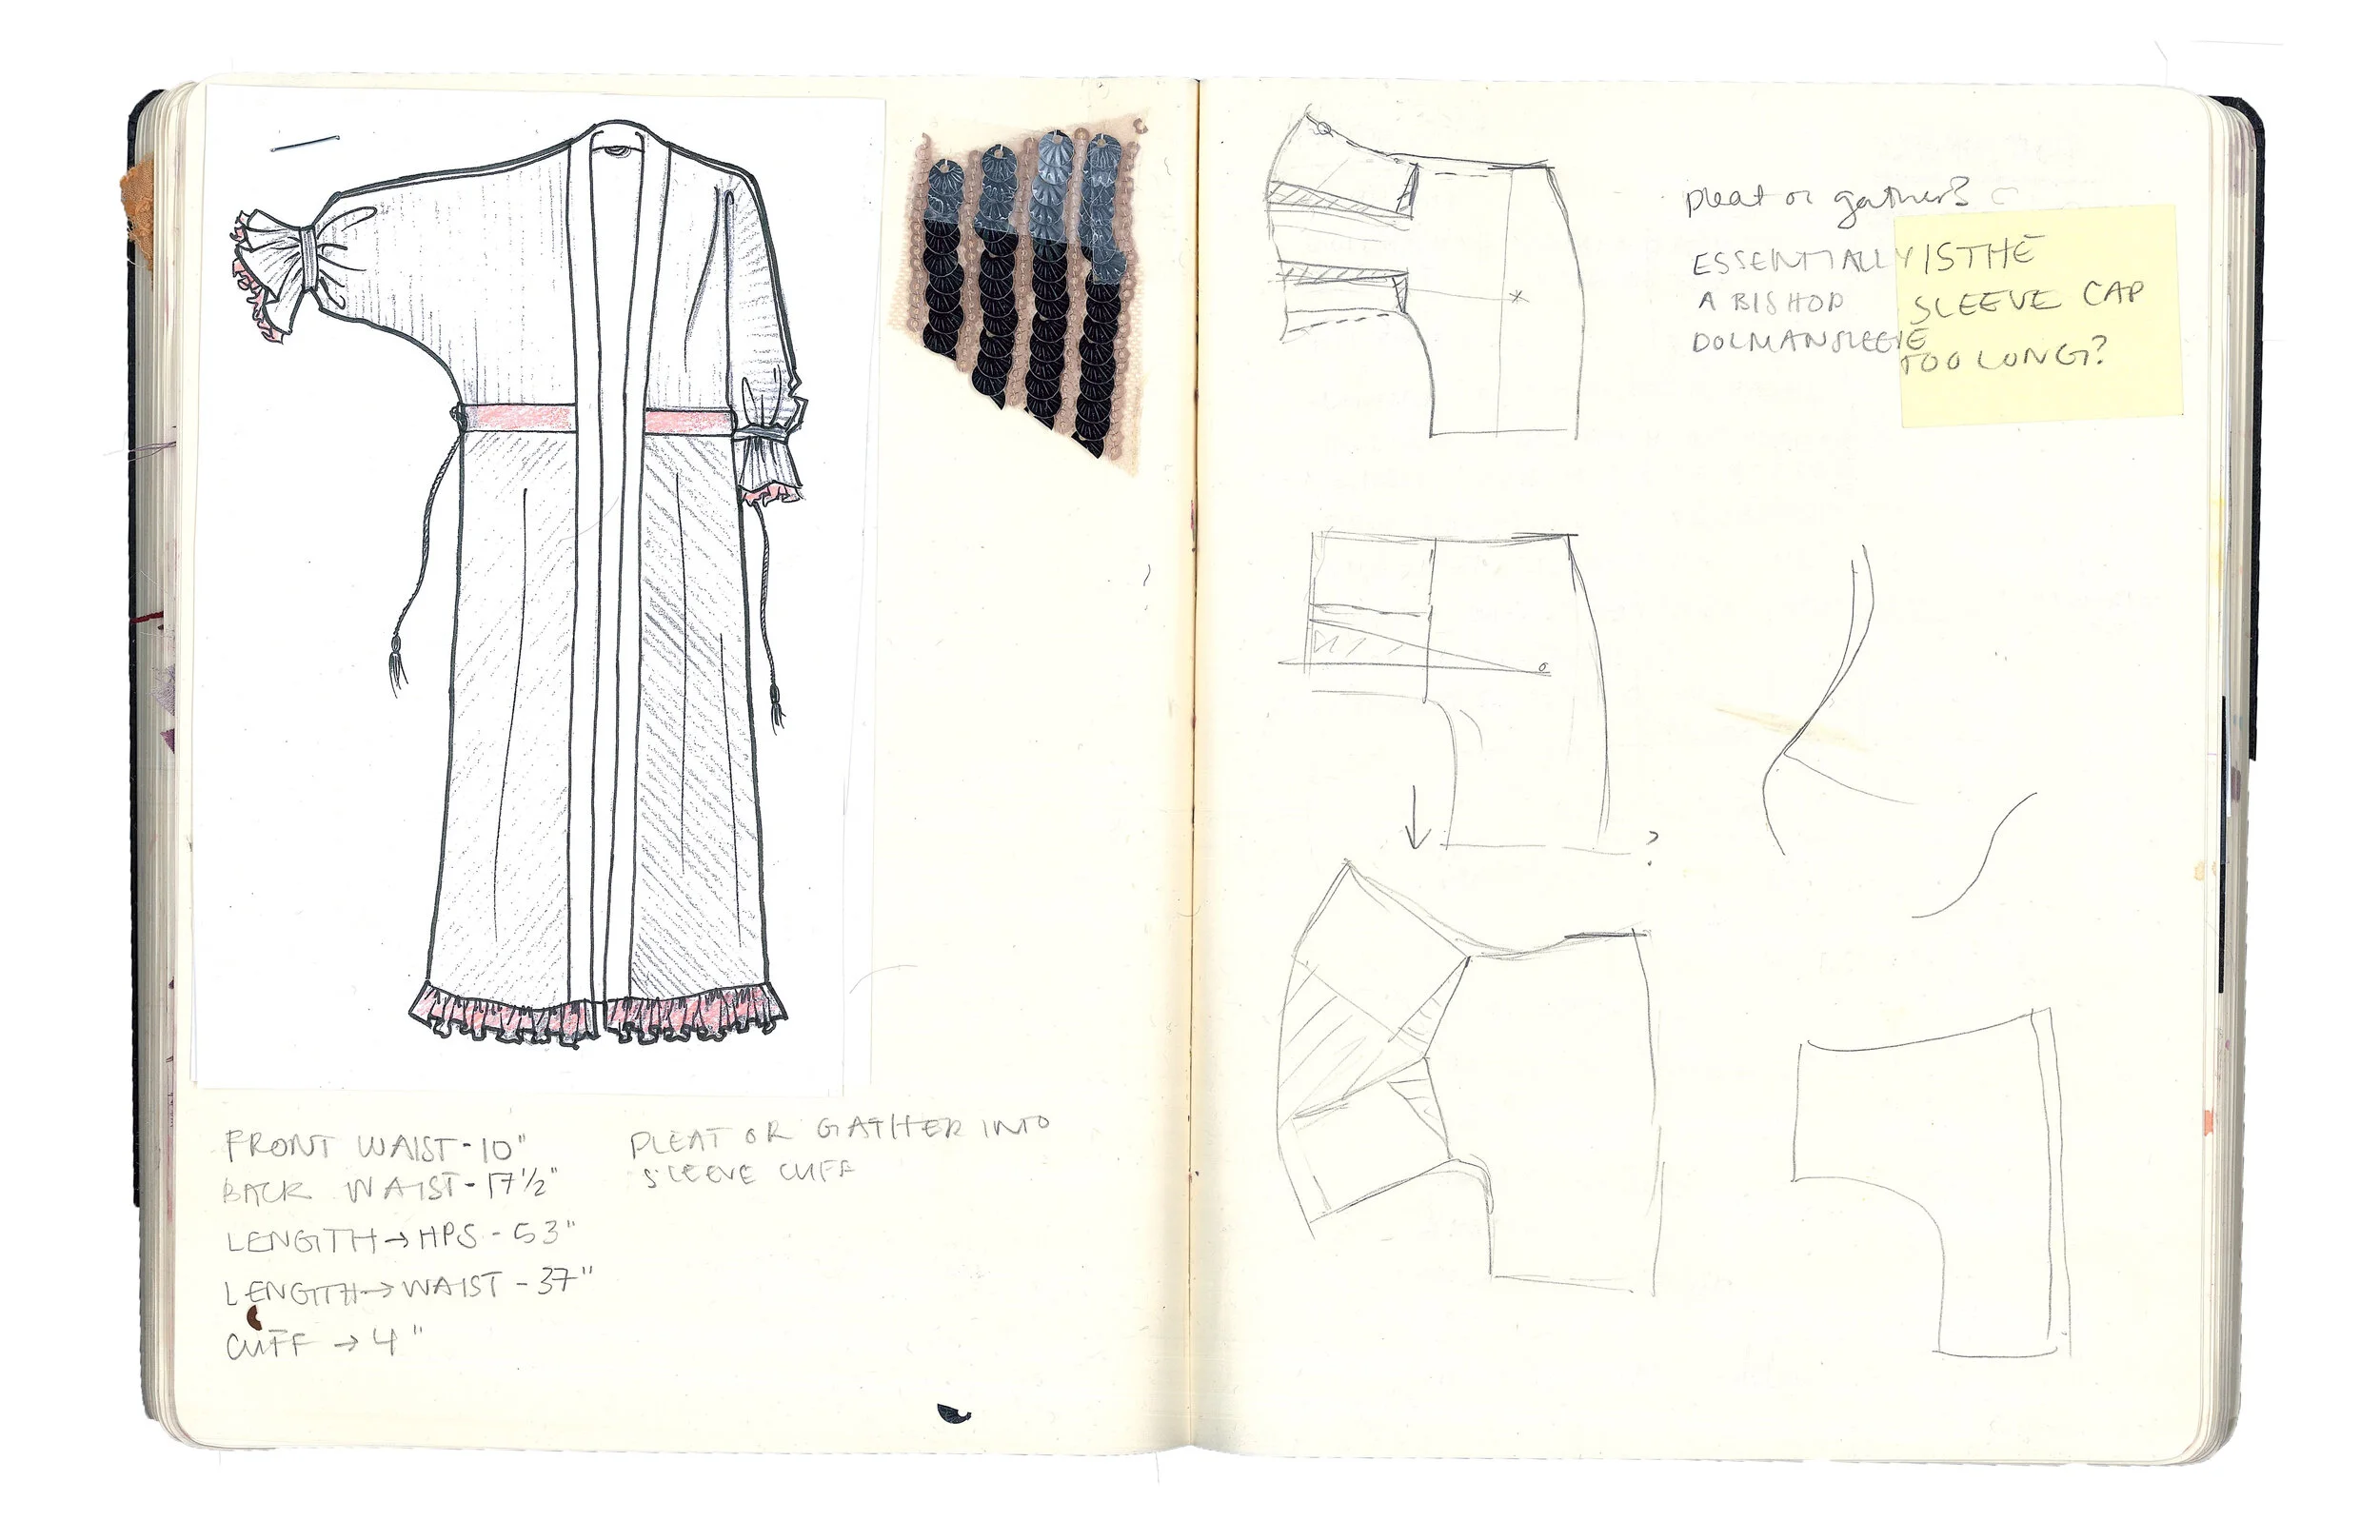 FRONT WAIST - 10"
BACK WAIST - 17 1/2"
LENGTH → HPS - 53"
LENGTH → WAIST - 37"
CUFF → 4"
PLEAT OR GATHER INTO
SLEEVE CUFF
pleat or gather?
ESSENTIALLY
A BISHOP
DOLMAN SLEEVE
IS THE
SLEEVE CAP
TOO LONG?
?